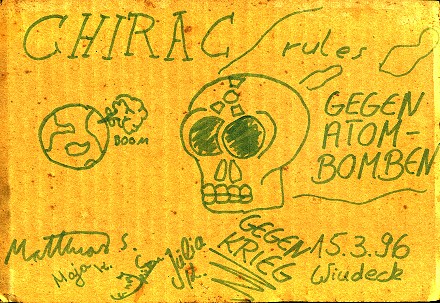 CHIRAC
rules
BOOM
GEGEN
ATOM-
BOMBEN
Matthias S.
Julia
GEGEN
KRIEG
15.3.96
Windeck